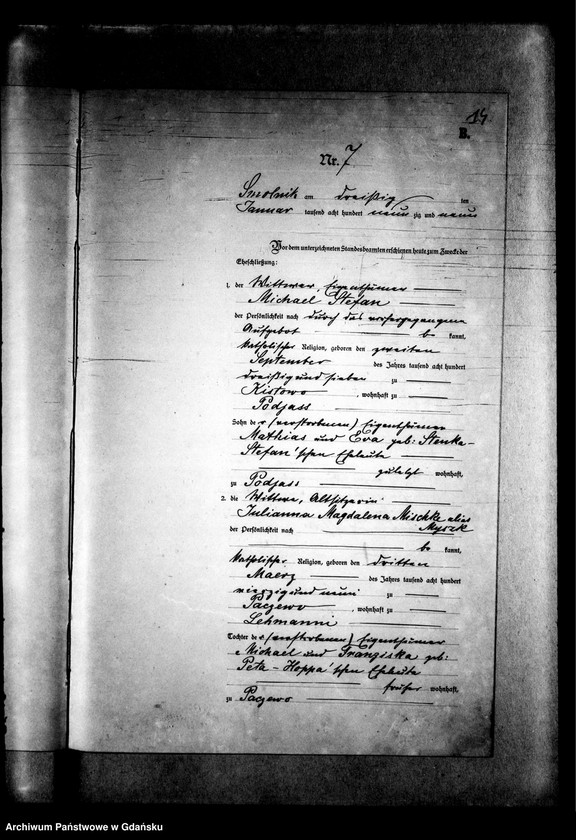 14
B.
Nr. 7
Smolnik am dreißig ten
Januar tausend acht hundert neun zig und neun
Vor dem unterzeichneten Standesbeamten erschienen heute zum Zwecke der
Eheschließung:
1. der Wittwer, Eigenthümer
Michael Stefan
der Persönlichkeit nach durch das vorhergegangene
Aufgebot be kannt,
katholischer Religion, geboren den zweiten
September des Jahres tausend acht hundert
dreißig und sieben zu
Kistowo, wohnhaft zu
Podjass
Sohn der (verstorbenen) Eigenthümer
Mathias und Eva geb: Stenka-
Stefan'schen Eheleute
zuletzt wohnhaft,
zu Podjass
2. die Wittwe, Altsitzerin
Julianna Magdalena Mischke alias
der Persönlichkeit nach
be kannt,
katholischer Religion, geboren den dritten
Maerz des Jahres tausend acht hundert
vierzig und neun zu
Paczewo, wohnhaft zu
Lehmanni
Tochter der (verstorbenen) Eigenthümer
Michael und Franziska geb:
Peta-Hoppa'schen Eheleute
früher wohnhaft,
zu Paczewo
Archiwum Państwowe w Gdańsku